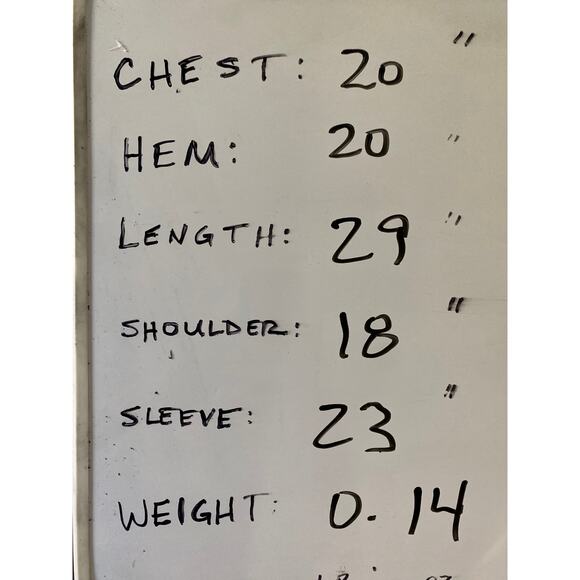 CHEST: 20"
HEM: 20"
LENGTH: 29"
SHOULDER: 18"
SLEEVE: 23"
WEIGHT: 0.14